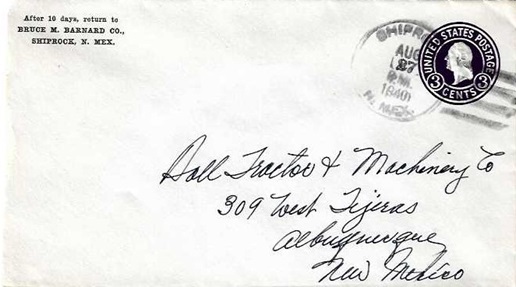 After 10 days, return to
BRUCE M. BARNARD CO.,
SHIPROCK, N. MEX.
SHIPRO
AUG
27
P.M.
1940
N. MEX.
UNITED STATES POSTAGE
3 CENTS 3
Hall Tractor & Machinery Co
309 West Tijeras
Albuquerque
New Mexico